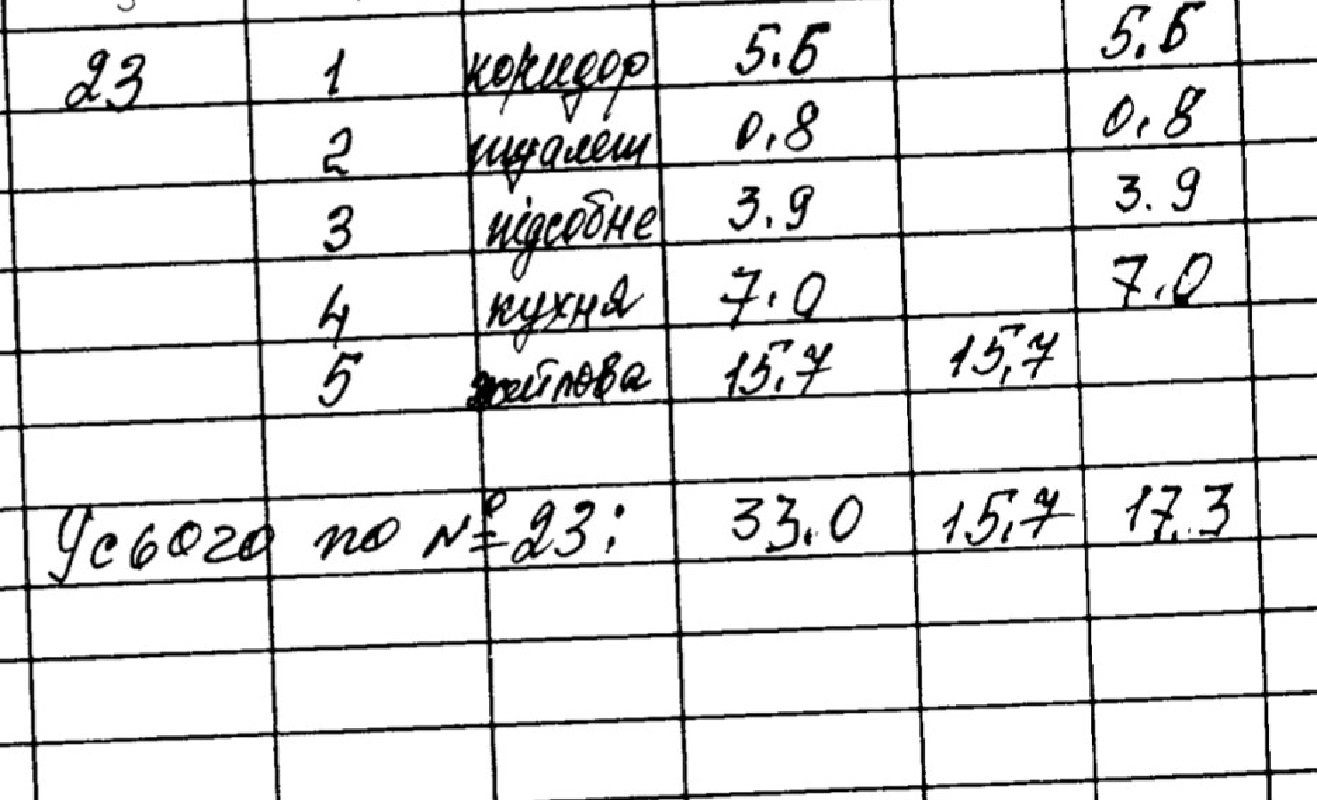 23 1 коридор 5.6 5.6
2 туалет 0.8 0.8
3 підсобне 3.9 3.9
4 кухня 7.0 7.0
5 житлова 15.7 15,7
Усього по № 23: 33.0 15.7 17.3